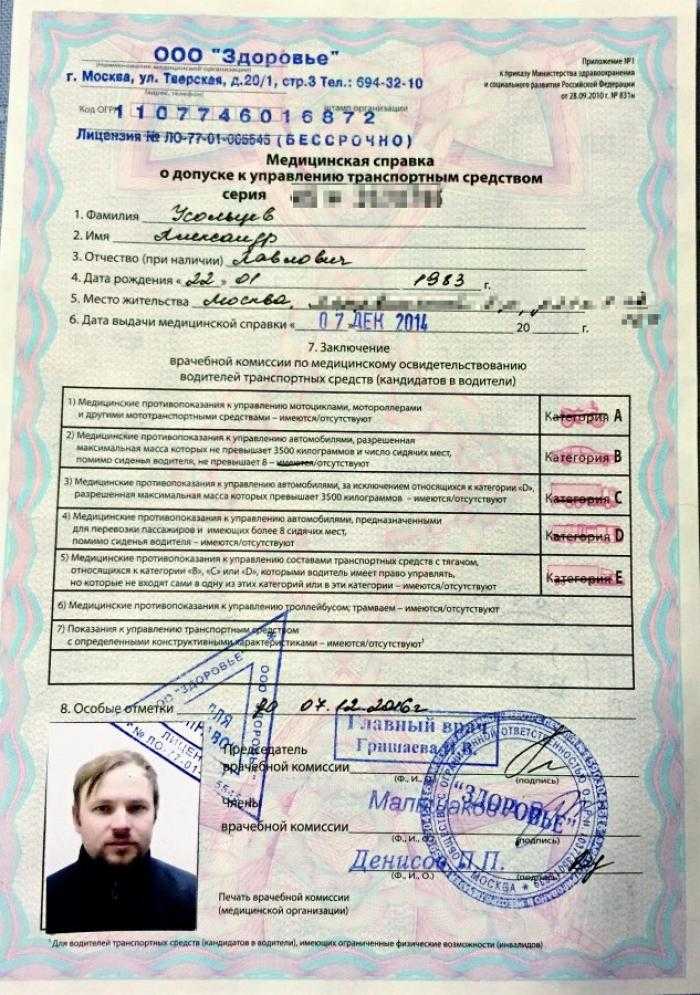 ООО "Здоровье"
(наименование медицинской организации)
г. Москва, ул. Тверская, д.20/1, стр.3 Тел.: 694-32-10
(адрес, телефон)
Код ОГРН 1107746016872
штамп организации
Лицензия № ЛО-77-01-006545 (БЕССРОЧНО)
Приложение №1
к приказу Министерства здравоохранения
и социального развития Российской Федерации
от 28.09.2010 г. № 831н
Медицинская справка
о допуске к управлению транспортным средством
серия
1. Фамилия Усольцев
2. Имя Александр
3. Отчество (при наличии) Павлович
4. Дата рождения « 22 » 01 1983 г.
5. Место жительства Москва,
6. Дата выдачи медицинской справки « 07 » ДЕК 2014 20 г.
7. Заключение
врачебной комиссии по медицинскому освидетельствованию
водителей транспортных средств (кандидатов в водители)
1) Медицинские противопоказания к управлению мотоциклами, мотороллерами
и другими мототранспортными средствами – имеются/отсутствуют
Категория A
2) Медицинские противопоказания к управлению автомобилями, разрешенная
максимальная масса которых не превышает 3500 килограммов и число сидячих мест,
помимо сиденья водителя, не превышает 8 – имеются/отсутствуют
Категория B
3) Медицинские противопоказания к управлению автомобилями, за исключением относящихся к категории «D»,
разрешенная максимальная масса которых превышает 3500 килограммов – имеются/отсутствуют
Категория C
4) Медицинские противопоказания к управлению автомобилями, предназначенными
для перевозки пассажиров и имеющих более 8 сидячих мест,
помимо сиденья водителя – имеются/отсутствуют
Категория D
5) Медицинские противопоказания к управлению составами транспортных средств с тягачом,
относящихся к категории «B», «C» или «D», которыми водитель имеет право управлять,
но которые не входят сами в одну из этих категорий или в эти категории – имеются/отсутствуют
Категория E
6) Медицинские противопоказания к управлению троллейбусом; трамваем – имеются/отсутствуют
7) Показания к управлению транспортным средством
с определенными конструктивными характеристиками – имеются/отсутствуют¹
8. Особые отметки до 07.12.2016г
ООО "ЗДОРОВЬЕ"
ООО "ЗДОРОВЬЕ"
ДЛЯ
Председатель
врачебной комиссии
Главный врач
Гришаева И.В.
(Ф., И., О.)
(подпись)
Члены
врачебной комиссии
(Ф., И., О.)
Денисов П.П.
(Ф., И., О.)
(подпись)
"ЗДОРОВЬЕ"
МОСКВА
Печать врачебной комиссии
(медицинской организации)
¹ Для водителей транспортных средств (кандидатов в водители), имеющих ограниченные физические возможности (инвалидов)